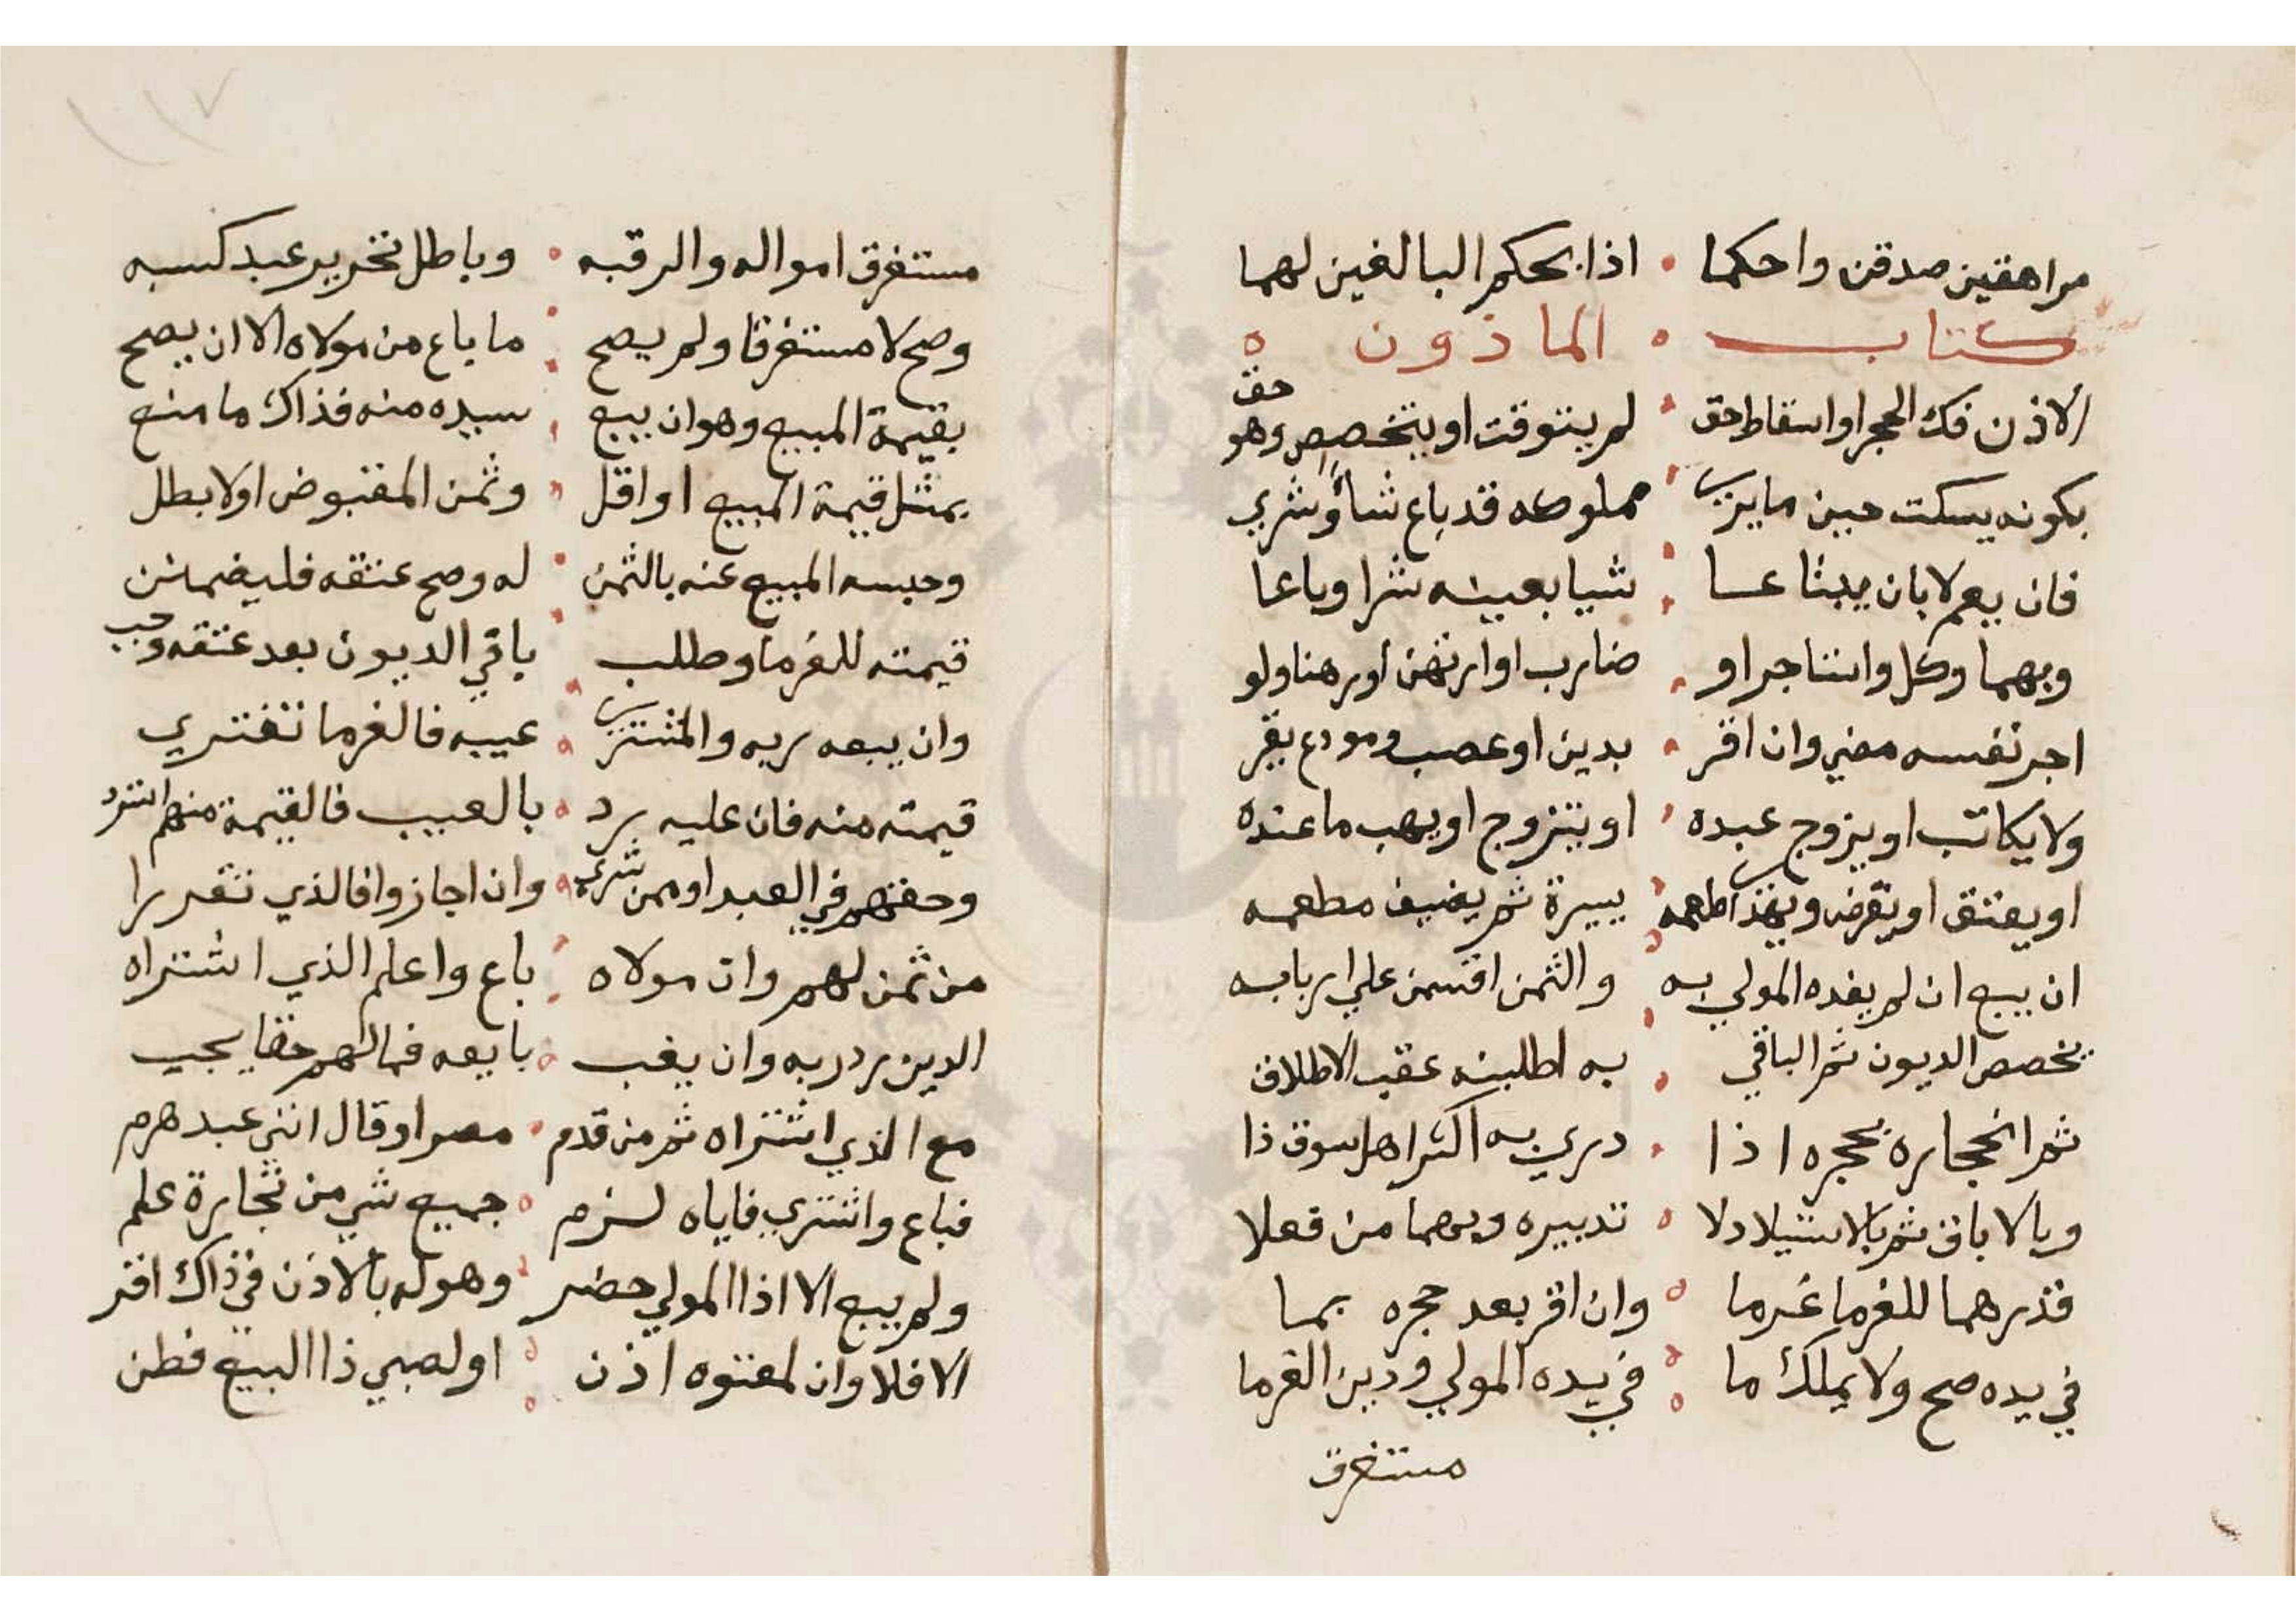 مراهقين صدقن واحكما • اذا بحكم البالغين لهما
كتاب • الماذون
الاذن فك الحجر او اسقاط حق • لم يتوقت او يتخصص وهو حق
بكونه يسكت حين ما يري • مملوكه قد باع شاؤشري
فان يعم لا بان يبتاعا • شيا بعينه شرا وباعا
وبهما وكل واستاجر او • ضارب او ارتهن او رهنا ولو
اجر نفسه مضي وان اقر • بدين او غصب ومودع يقر
ولا يكاتب او يزوج عبده • او يتزوج او يهب ما عنده
او يعتق او يقرض ويهدي اطعمه • يسيرة ثم يضيف مطعمه
ان بيع ان لم يفده المولي به • والثمن اقسمن علي اربابه
بخصص الديون ثم الباقي • به اطلبنه عقب الاطلاق
ثم انحجاره بحجره اذا • دري به اكثر اهل سوق ذا
وبالاباق ثم بالاستيلاد لا • تدبيره وبهما من فعلا
قدرهما للغرما غرما • وان اقر بعد حجره بما
في يده صح ولا يملك ما • في يده المولي ودين الغرما
مستغرق
١١٧
مستغرق امواله والرقبه • وباطل تحرير عبد كسبه
وصح لا مستغرقا ولم يصح • ما باع من مولاه الا ان يصح
بقيمة المبيع وهو ان يبيع • سيده منه فذاك ما منع
بمثل قيمة المبيع او اقل • وثمن المقبوض اولا بطل
وحبسه المبيع عنه بالثمن • له وصح عتقه فليضمنن
قيمته للغرما وطلب • باقي الديون بعد عتقه وجب
وان يبعه ربه والمشتري • عيبه فالغرما تفتري
قيمته منه فان عليه يرد • بالعيب فالقيمة منهم استرد
وحقهم في العبد او ممن شري • وان اجازوا فالذي تقررا
من ثمن لهم وان مولاه • باع واعلم الذي اشتراه
الدين رد ربه وان يغب • بايعه فما لهم حقا يجب
مع الذي اشتراه ثم من قدم • مصرا وقال انني عبد هرم
فباع واشتري فاياه لزم • جميع شي من تجارة علم
ولم يبع الا اذا المولي حضر • وهو له بالاذن في ذاك اقر
الا فلا وان لمعتوه اذن • او لصبي ذا البيع فطن